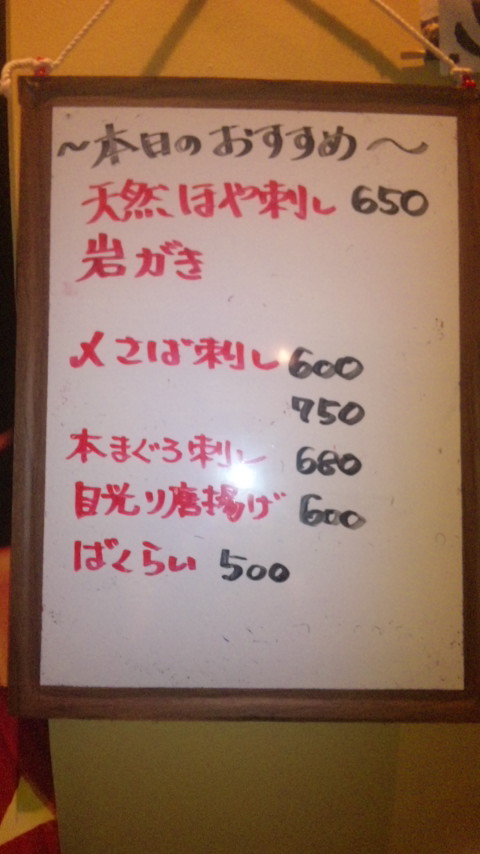 ～本日のおすすめ～
天然ほや刺し 650
岩がき
〆さば刺し 600
750
本まぐろ刺し 680
目光り唐揚げ 600
ばくらい 500